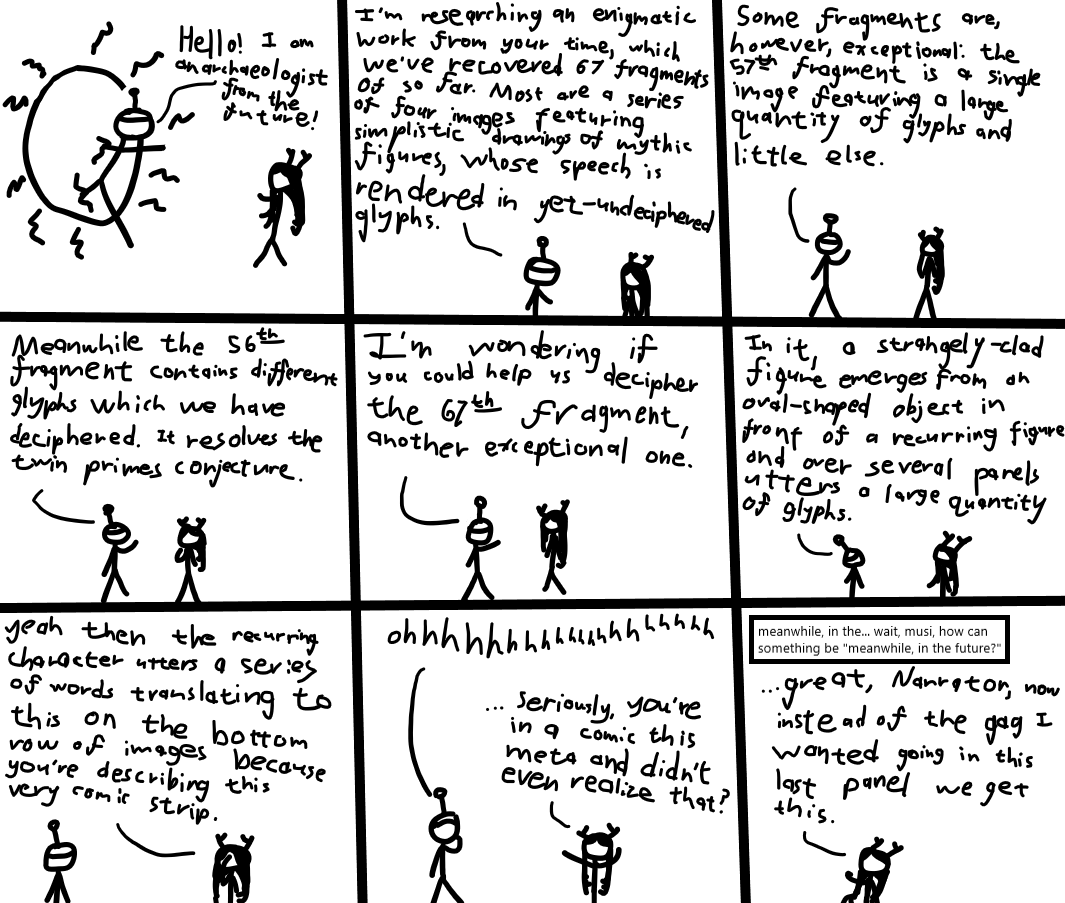 Hello! I am
an archaeologist
from the
future!
I'm researching an enigmatic
work from your time, which
we've recovered 67 fragments
of so far. Most are a series
of four images featuring
simplistic drawings of mythic
figures, whose speech is
rendered in yet-undeciphered
glyphs.
Some fragments are,
however, exceptional: the
57th fragment is a single
image featuring a large
quantity of glyphs and
little else.
Meanwhile the 56th
fragment contains different
glyphs which we have
deciphered. It resolves the
twin primes conjecture.
I'm wondering if
you could help us decipher
the 67th fragment,
another exceptional one.
In it, a strangely-clad
figure emerges from an
oval-shaped object in
front of a recurring figure
and over several panels
utters a large quantity
of glyphs.
yeah then the recurring
character utters a series
of words translating to
this on the bottom
row of images because
you're describing this
very comic strip.
ohhhhhhhhhhhhhhhhhhhh
... seriously, you're
in a comic this
meta and didn't
even realize that?
meanwhile, in the... wait, musi, how can
something be "meanwhile, in the future?"
...great, Narrator, now
instead of the gag I
wanted going in this
last panel we get
this.